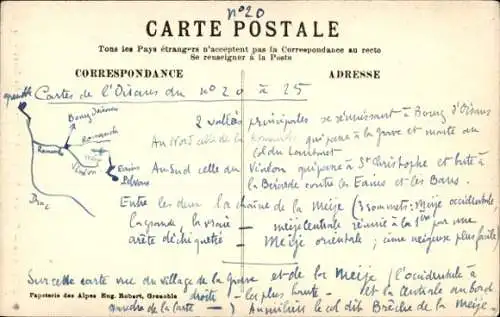 n°20
CARTE POSTALE
Tous les Pays étrangers n'acceptent pas la Correspondance au recto
Se renseigner à la Poste
CORRESPONDANCE
ADRESSE
Cartes de l'Oisans du n° 20 à 25
2 vallées principales se réunissant à Bourg d'Oisans
Au Nord celle de la Romanche qui passe à la Grave et monte au
col du Lautaret
Au Sud celle du Vénéon qui passe à St Christophe et bute à
la Bérarde contre les Ecrins et les Bans.
Entre les deux la chaîne de la Meije (3 sommets: Meije occidentale
la grande la vraie - meije centrale réunie à la 1ère par une
arête déchiquetée - Meije orientale; cime neigeuse plus facile)
Grenoble
Bourg d'Oisans
Romanche
Romanche
Vénéon
Ecrins
Pelvoux
Drac
Sur cette carte vue du village de la Grave et de la Meije (l'occidentale à
droite - la plus haute - et la Centrale au bord
de la carte -) Au milieu le col dit Brèche de la Meije.
Papeterie des Alpes Eug. Robert, Grenoble